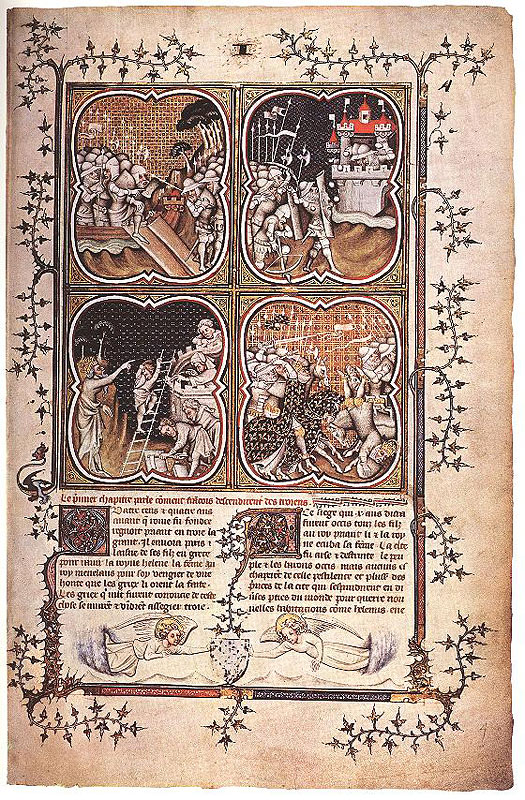 Le p̃mier chapitre parle cõment francois descendirent des troiens.
Quatre cens et quatre ans
auant que rome fu fondee
regnoit priant en troie la
grant. Il enuoia paris l
ainsne de ses filz en grece
pour rauir la royne helene la feme au
roy menelaus pour soy vengier de vne
honte que les griex li orent ia faite.
Les griex qui furent de ceste
chose se murẽt ⁊ vidrẽt assegier troie.
A ce siege qui x ans dura
furent occis touz les filz
au roy priant li ⁊ la roy
ne ecuba sa feme. La cite
fu arse ⁊ destruite le peu
ple ⁊ les barons occis. mais aucuns es
chaperẽt de celle pestilence ⁊ des
princes de la cite qui sespandirent en di
uerses pties du monde pour querre nou
uelles habitacions come helenus ene